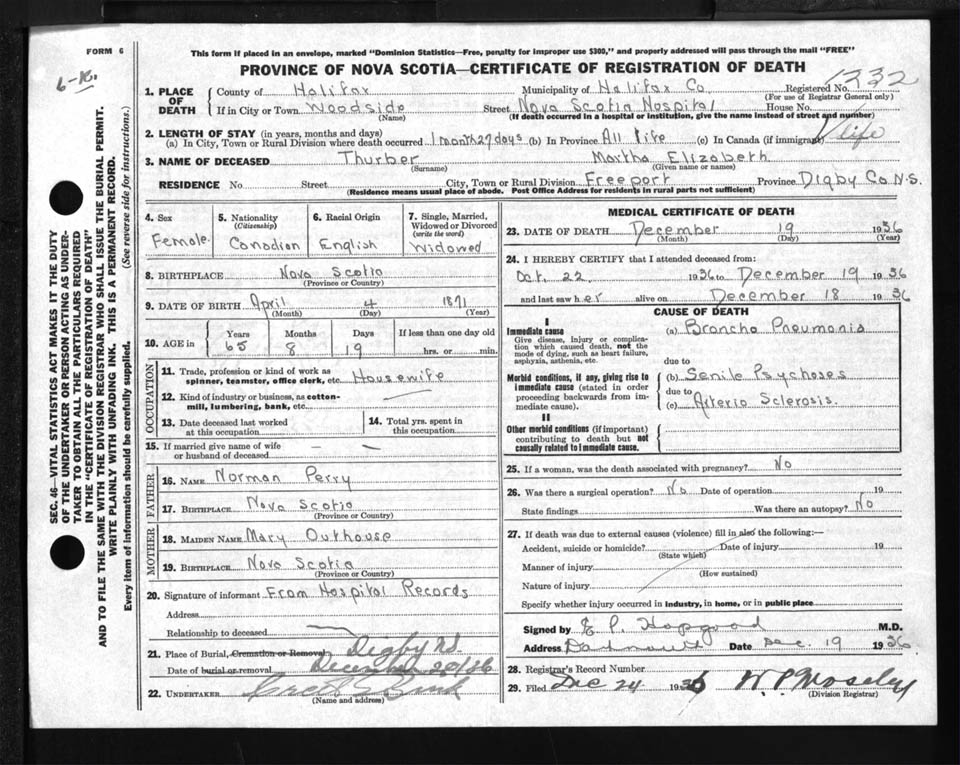 FORM 6
This form if placed in an envelope, marked "Dominion Statistics—Free, penalty for improper use $300," and properly addressed will pass through the mail "FREE"
PROVINCE OF NOVA SCOTIA—CERTIFICATE OF REGISTRATION OF DEATH
6-K.
1332
1. PLACE OF DEATH County of Halifax Municipality of Halifax Co Registered No.
(For use of Registrar General only)
If in City or Town Woodside Street Nova Scotia Hospital House No.
(Name) (If death occurred in a hospital or institution, give the name instead of street and number)
2. LENGTH OF STAY (in years, months and days)
(a) In City, Town or Rural Division where death occurred 1 month 27 days (b) In Province All Life (c) In Canada (if immigrant) life
3. NAME OF DECEASED Thurber Martha Elizabeth
(Surname) (Given name or names)
RESIDENCE No Street City, Town or Rural Division Freeport Province Digby Co N.S.
(Residence means usual place of abode. Post Office Address for residents in rural parts not sufficient)
4. Sex Female
5. Nationality (Citizenship) Canadian
6. Racial Origin English
7. Single, Married, Widowed or Divorced (write the word) Widowed
8. BIRTHPLACE Nova Scotia
(Province or Country)
9. DATE OF BIRTH April 4 1871
(Month) (Day) (Year)
10. AGE in Years 65 Months 8 Days 19 If less than one day old hrs. or min.
OCCUPATION
11. Trade, profession or kind of work as spinner, teamster, office clerk, etc. Housewife
12. Kind of industry or business, as cotton-mill, lumbering, bank, etc.
13. Date deceased last worked at this occupation
14. Total yrs. spent in this occupation
15. If married give name of wife or husband of deceased
FATHER
16. NAME Norman Perry
17. BIRTHPLACE Nova Scotia
(Province or Country)
MOTHER
18. MAIDEN NAME Mary Outhouse
19. BIRTHPLACE Nova Scotia
(Province or Country)
20. Signature of informant From Hospital Records
Address
Relationship to deceased
21. Place of Burial, Cremation or Removal Digby NS
Date of burial or removal December 20/36
22. UNDERTAKER
(Name and address)
MEDICAL CERTIFICATE OF DEATH
23. DATE OF DEATH December 19 1936
(Month) (Day) (Year)
24. I HEREBY CERTIFY that I attended deceased from:
Oct. 22 1936 to December 19 1936
and last saw her alive on December 18 1936
CAUSE OF DEATH
I
Immediate cause
Give disease, injury or complication which caused death, not the mode of dying, such as heart failure, asphyxia, asthenia, etc.
(a) Broncho Pneumonia
due to
Morbid conditions, if any, giving rise to immediate cause (stated in order proceeding backwards from immediate cause).
(b) Senile Psychoses
due to
(c) Arterio Sclerosis.
II
Other morbid conditions (if important) contributing to death but not causally related to immediate cause.
25. If a woman, was the death associated with pregnancy? No
26. Was there a surgical operation? No Date of operation 19
State findings Was there an autopsy? No
27. If death was due to external causes (violence) fill in also the following:—
Accident, suicide or homicide? Date of injury 19
(State which)
Manner of injury
(How sustained)
Nature of injury
Specify whether injury occurred in industry, in home, or in public place
Signed by E P. Hopgood M.D.
Address Dartmouth Date Dec 19 1936
28. Registrar's Record Number
29. Filed Dec 24 1936 W. P. Moseley
(Division Registrar)
SEC. 46—VITAL STATISTICS ACT MAKES IT THE DUTY
OF THE UNDERTAKER OR PERSON ACTING AS UNDER-
TAKER TO OBTAIN ALL THE PARTICULARS REQUIRED
IN THE "CERTIFICATE OF REGISTRATION OF DEATH"
AND TO FILE THE SAME WITH THE DIVISION REGISTRAR WHO SHALL ISSUE THE BURIAL PERMIT.
WRITE PLAINLY WITH UNFADING INK. THIS IS A PERMANENT RECORD.
Every item of information should be carefully supplied. (See reverse side for instructions.)